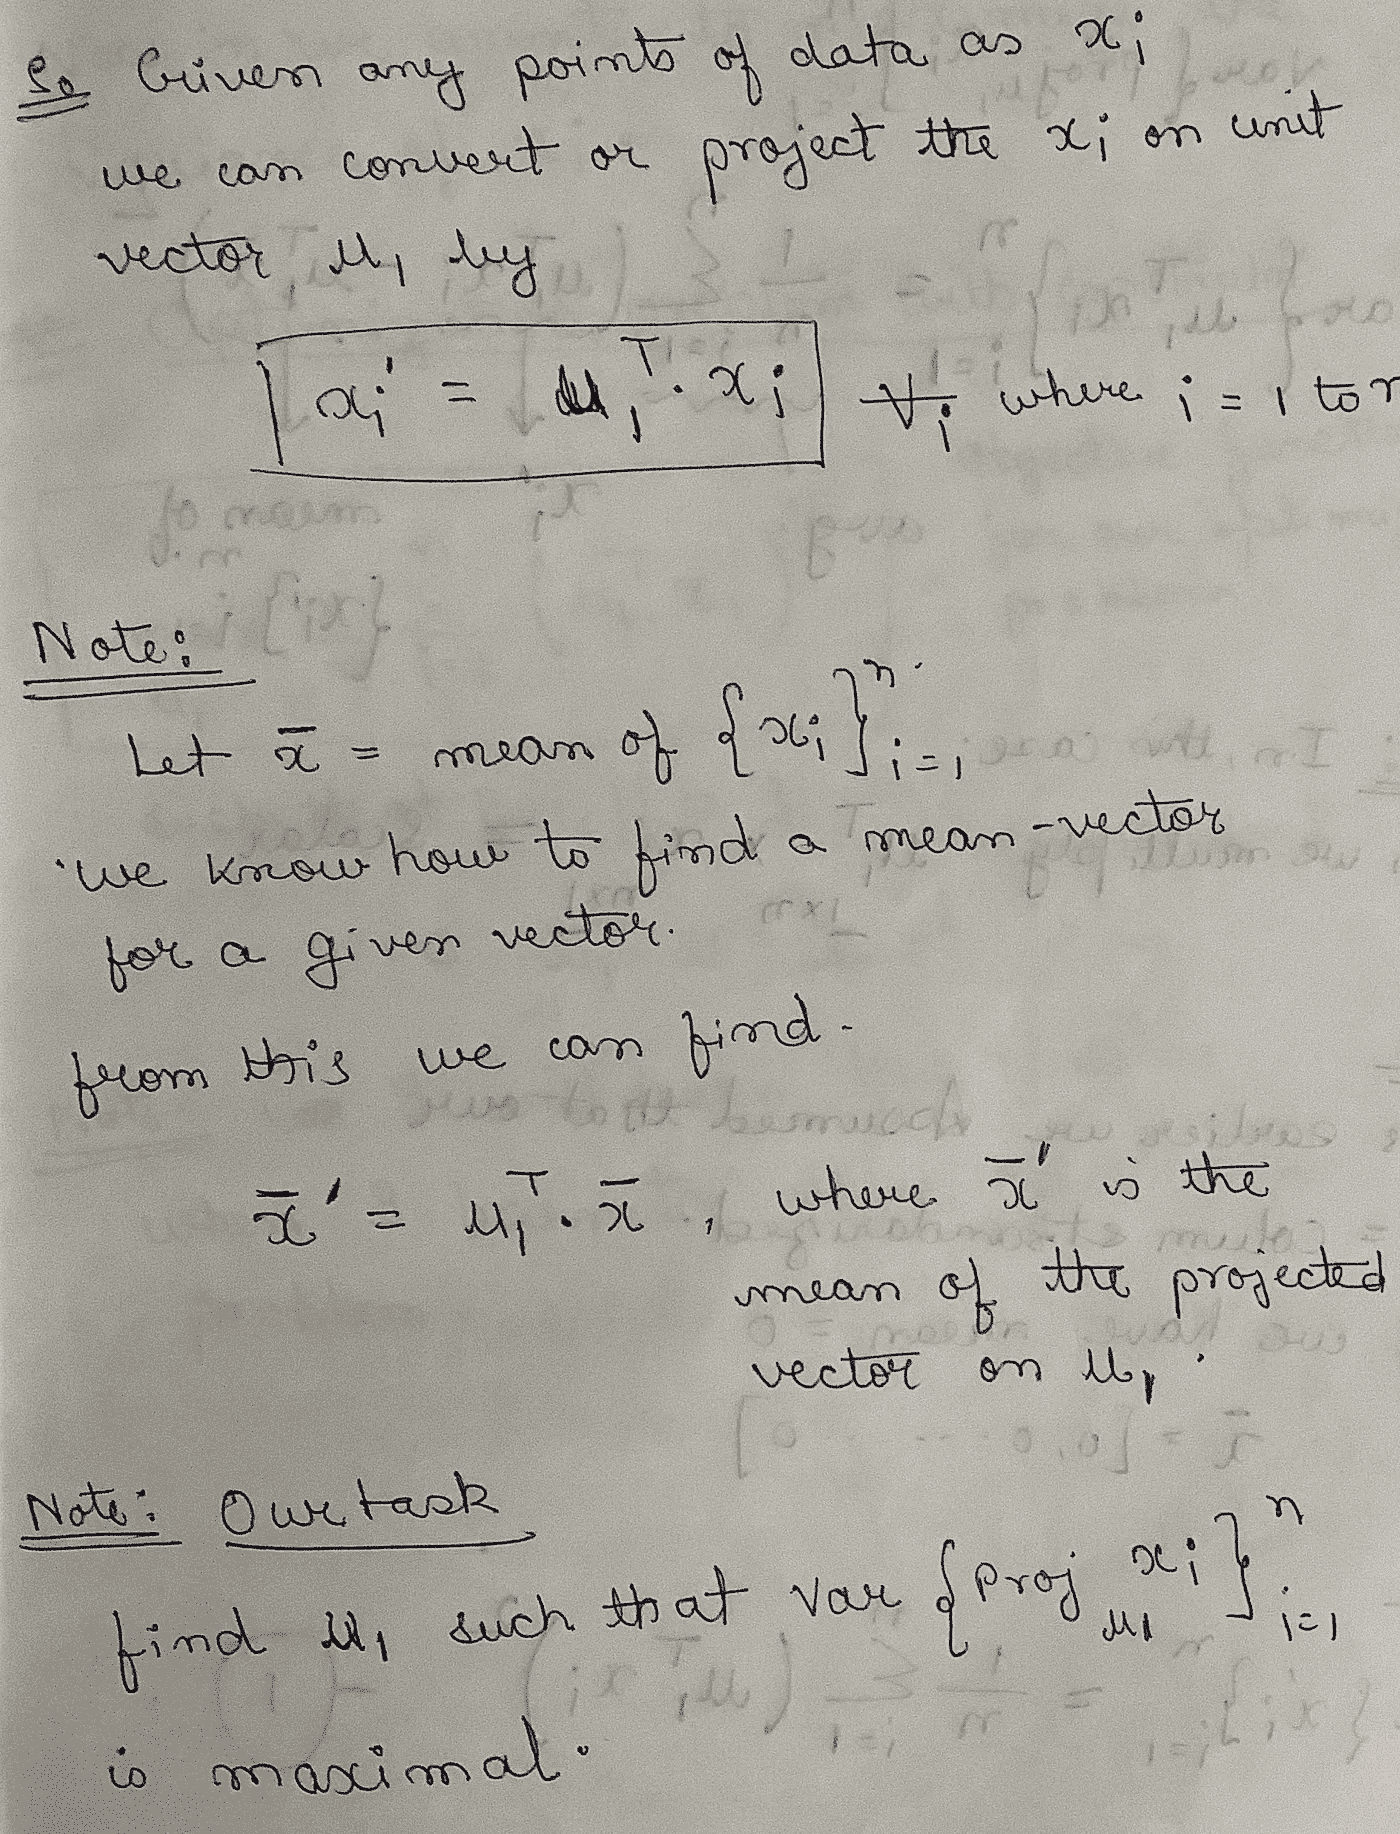 So Given any points of data as xᵢ
we can convert or project the xᵢ on unit
vector u₁ by
xᵢ' = u₁ᵀ . xᵢ ∀ᵢ where i = 1 to n
Note:
Let x̄ = mean of {xᵢ}ⁿᵢ₌₁
we know how to find a mean-vector
for a given vector.
from this we can find.
x̄' = u₁ᵀ . x̄ , where x̄' is the
mean of the projected
vector on u₁.
Note: Our task
find u₁ such that var {Proj_u₁ xᵢ}ⁿᵢ₌₁
is maximal.